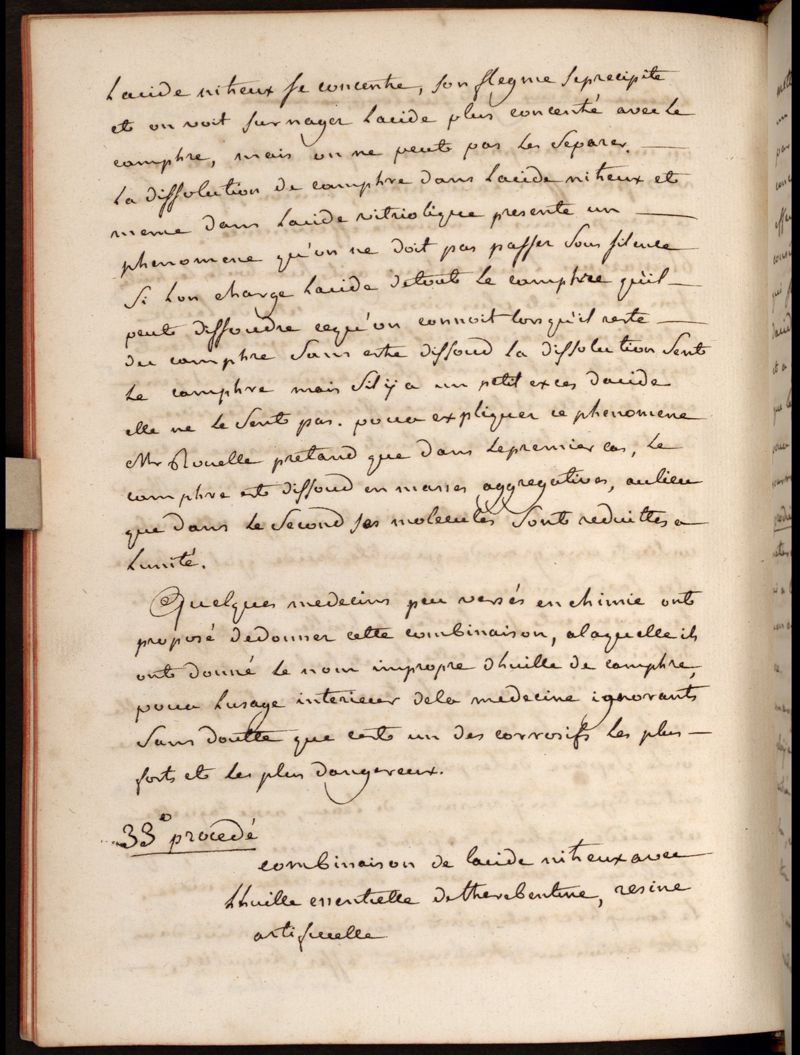 Lacide nitreux se concentre, son flegme se precipite
et on voit surnager Lacide plus concentré avec Le
camphre, mais on ne peut pas Les Separer. —
La dissolution de camphre dans Lacide nitreux et
meme dans Lacide vitriolique presente un —
phenomene qu'on ne doit pas passer Sous Silence
Si Lon charge Lacide detout Le camphre qu'il —
peut dissoudre cequ'on connoit lorsqu'il reste —
du camphre Sans estre dissoud La dissolution Sent
Le camphre mais S'il y a un petit exces dacide
elle ne Le Sent pas. pour expliquer ce phenomene
Mr Rouelle pretand que dans Lepremier cas, Le
camphre est dissoud en masses aggregatives, aulieu
que dans Le Second ses molecules Sont reduittes a
Lunité.
Quelques medecins peu versés en chimie ont
proposé dedonner cette combinaison, alaquelle ils
ont donné Le nom impropre dhuille de camphre,
pour Lusage interieur dela medecine ignorants
Sans doutte que cest un des corrosifs Les plus —
forts et Les plus dangereux.
33e procedé
combinaison de lacide nitreux avec
Lhuille essentielle detherebentine, resine
artificielle